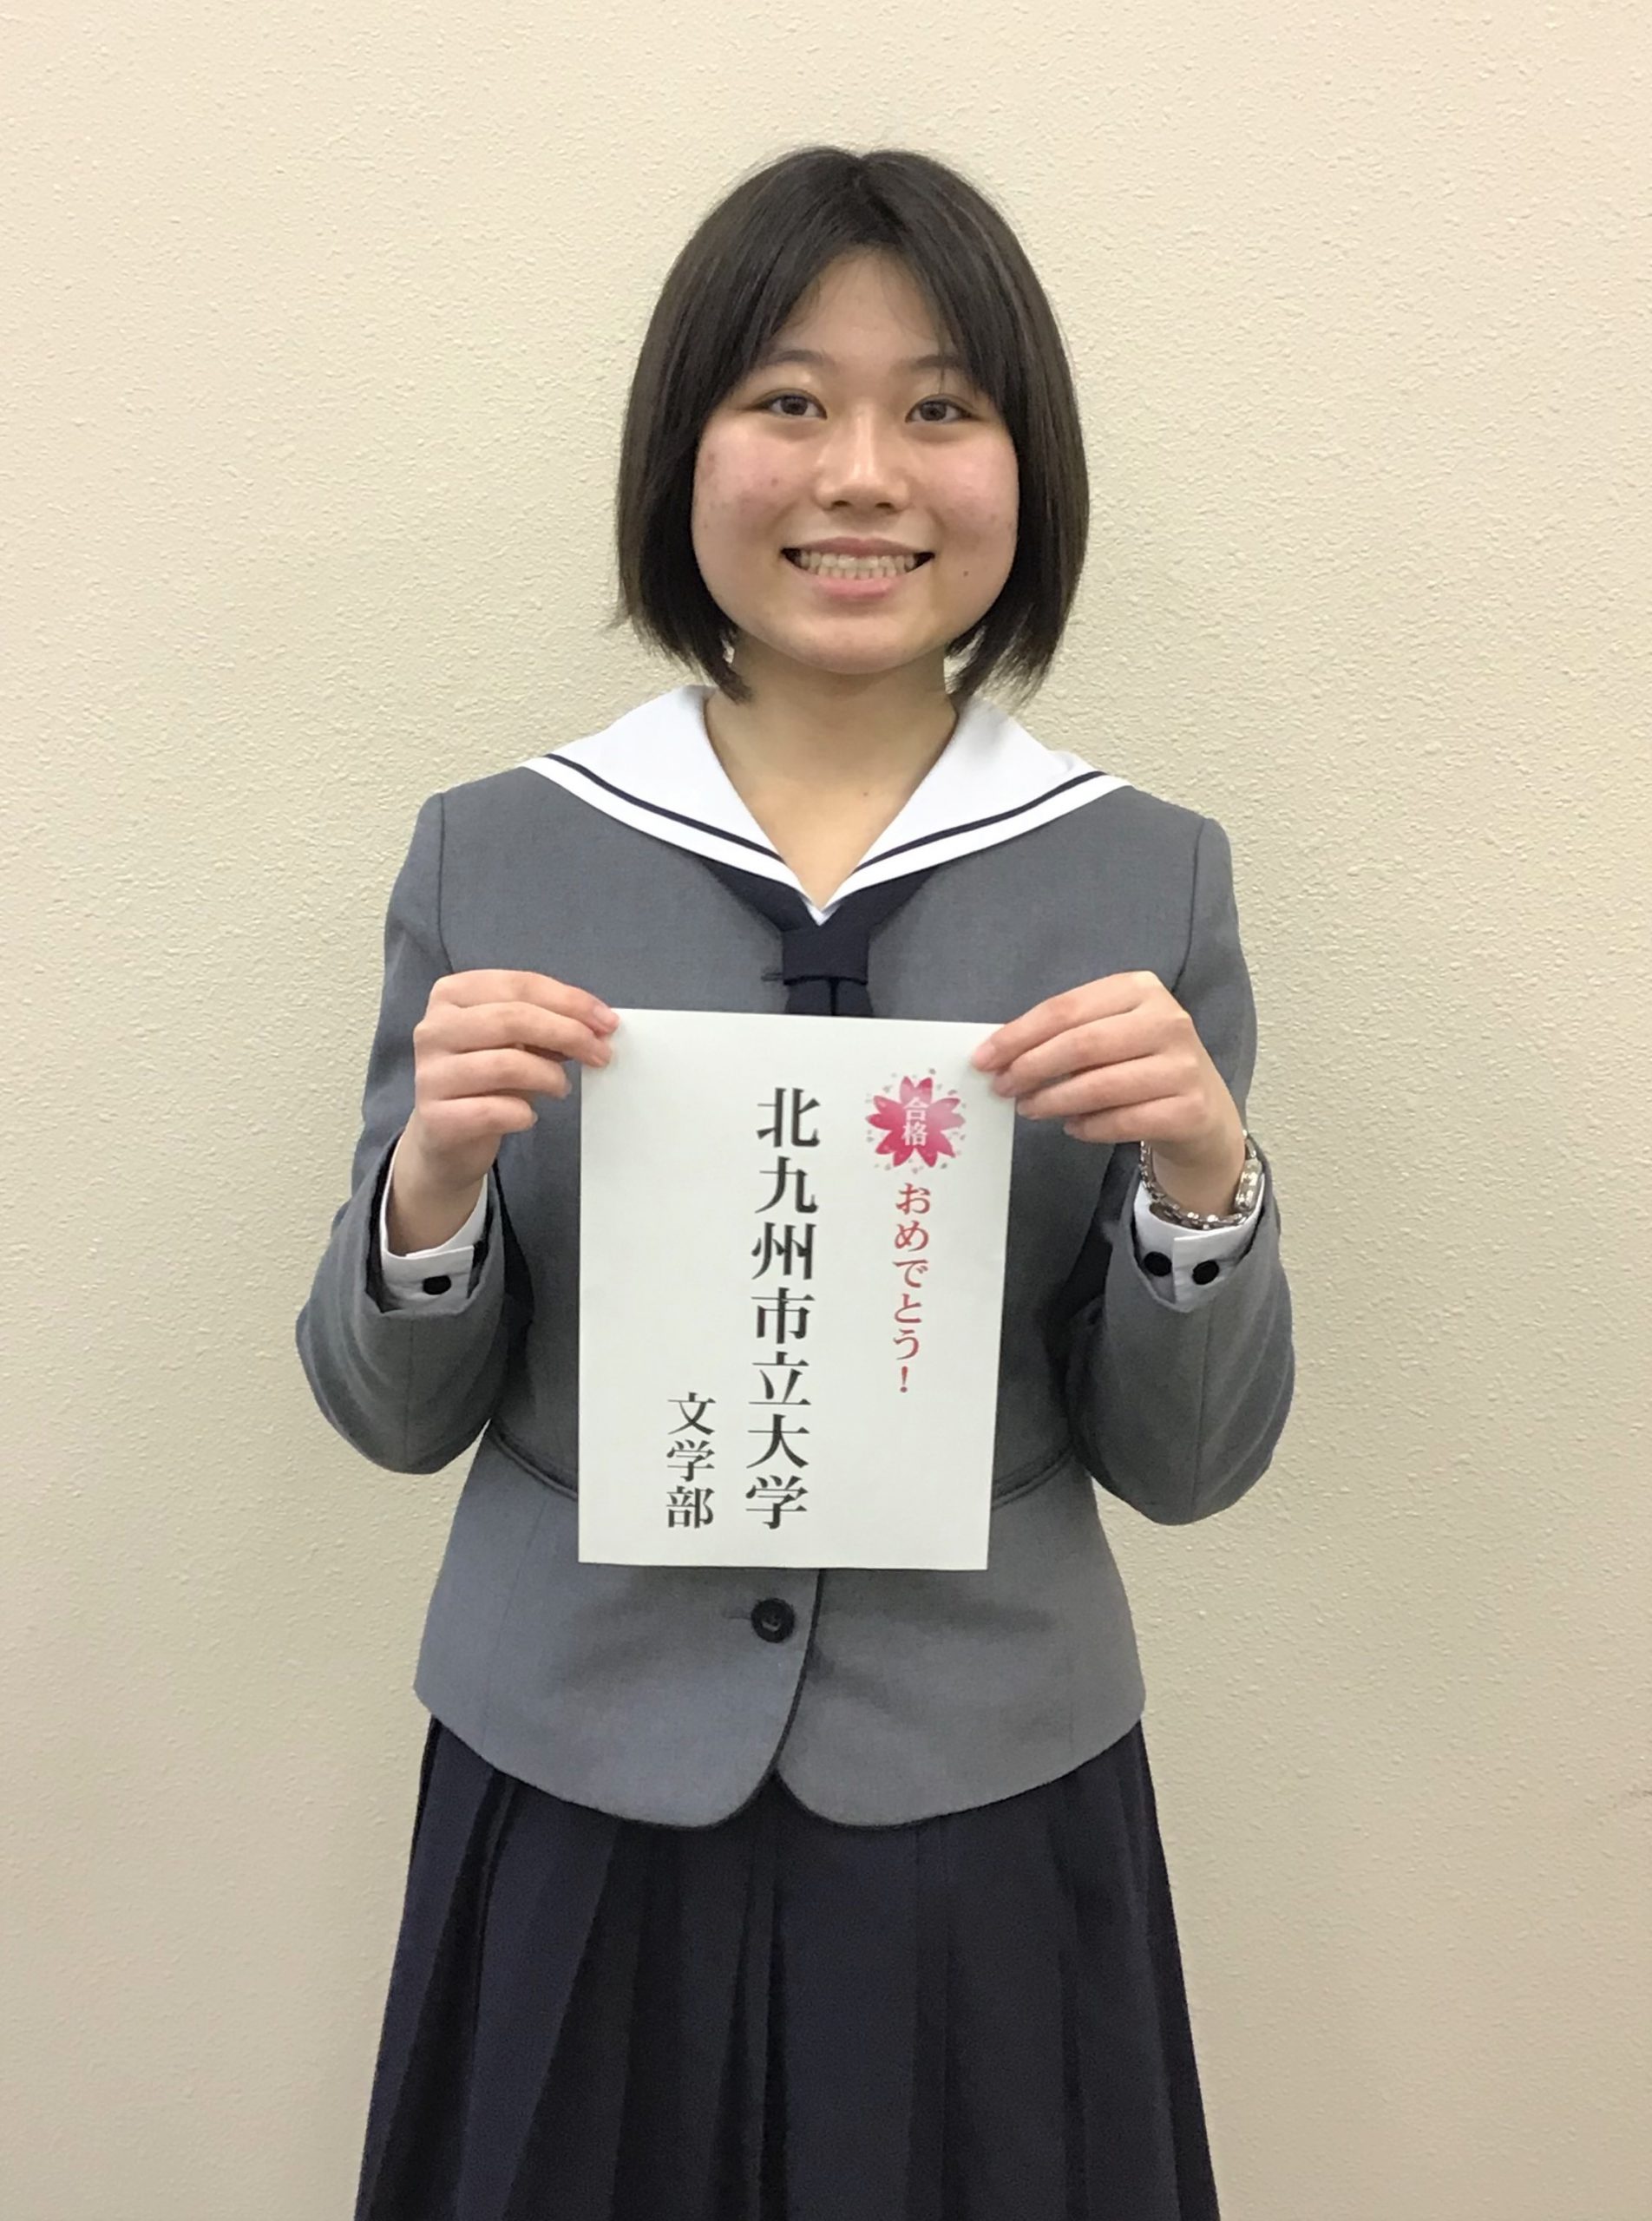 合格
おめでとう！
北九州市立大学
文学部